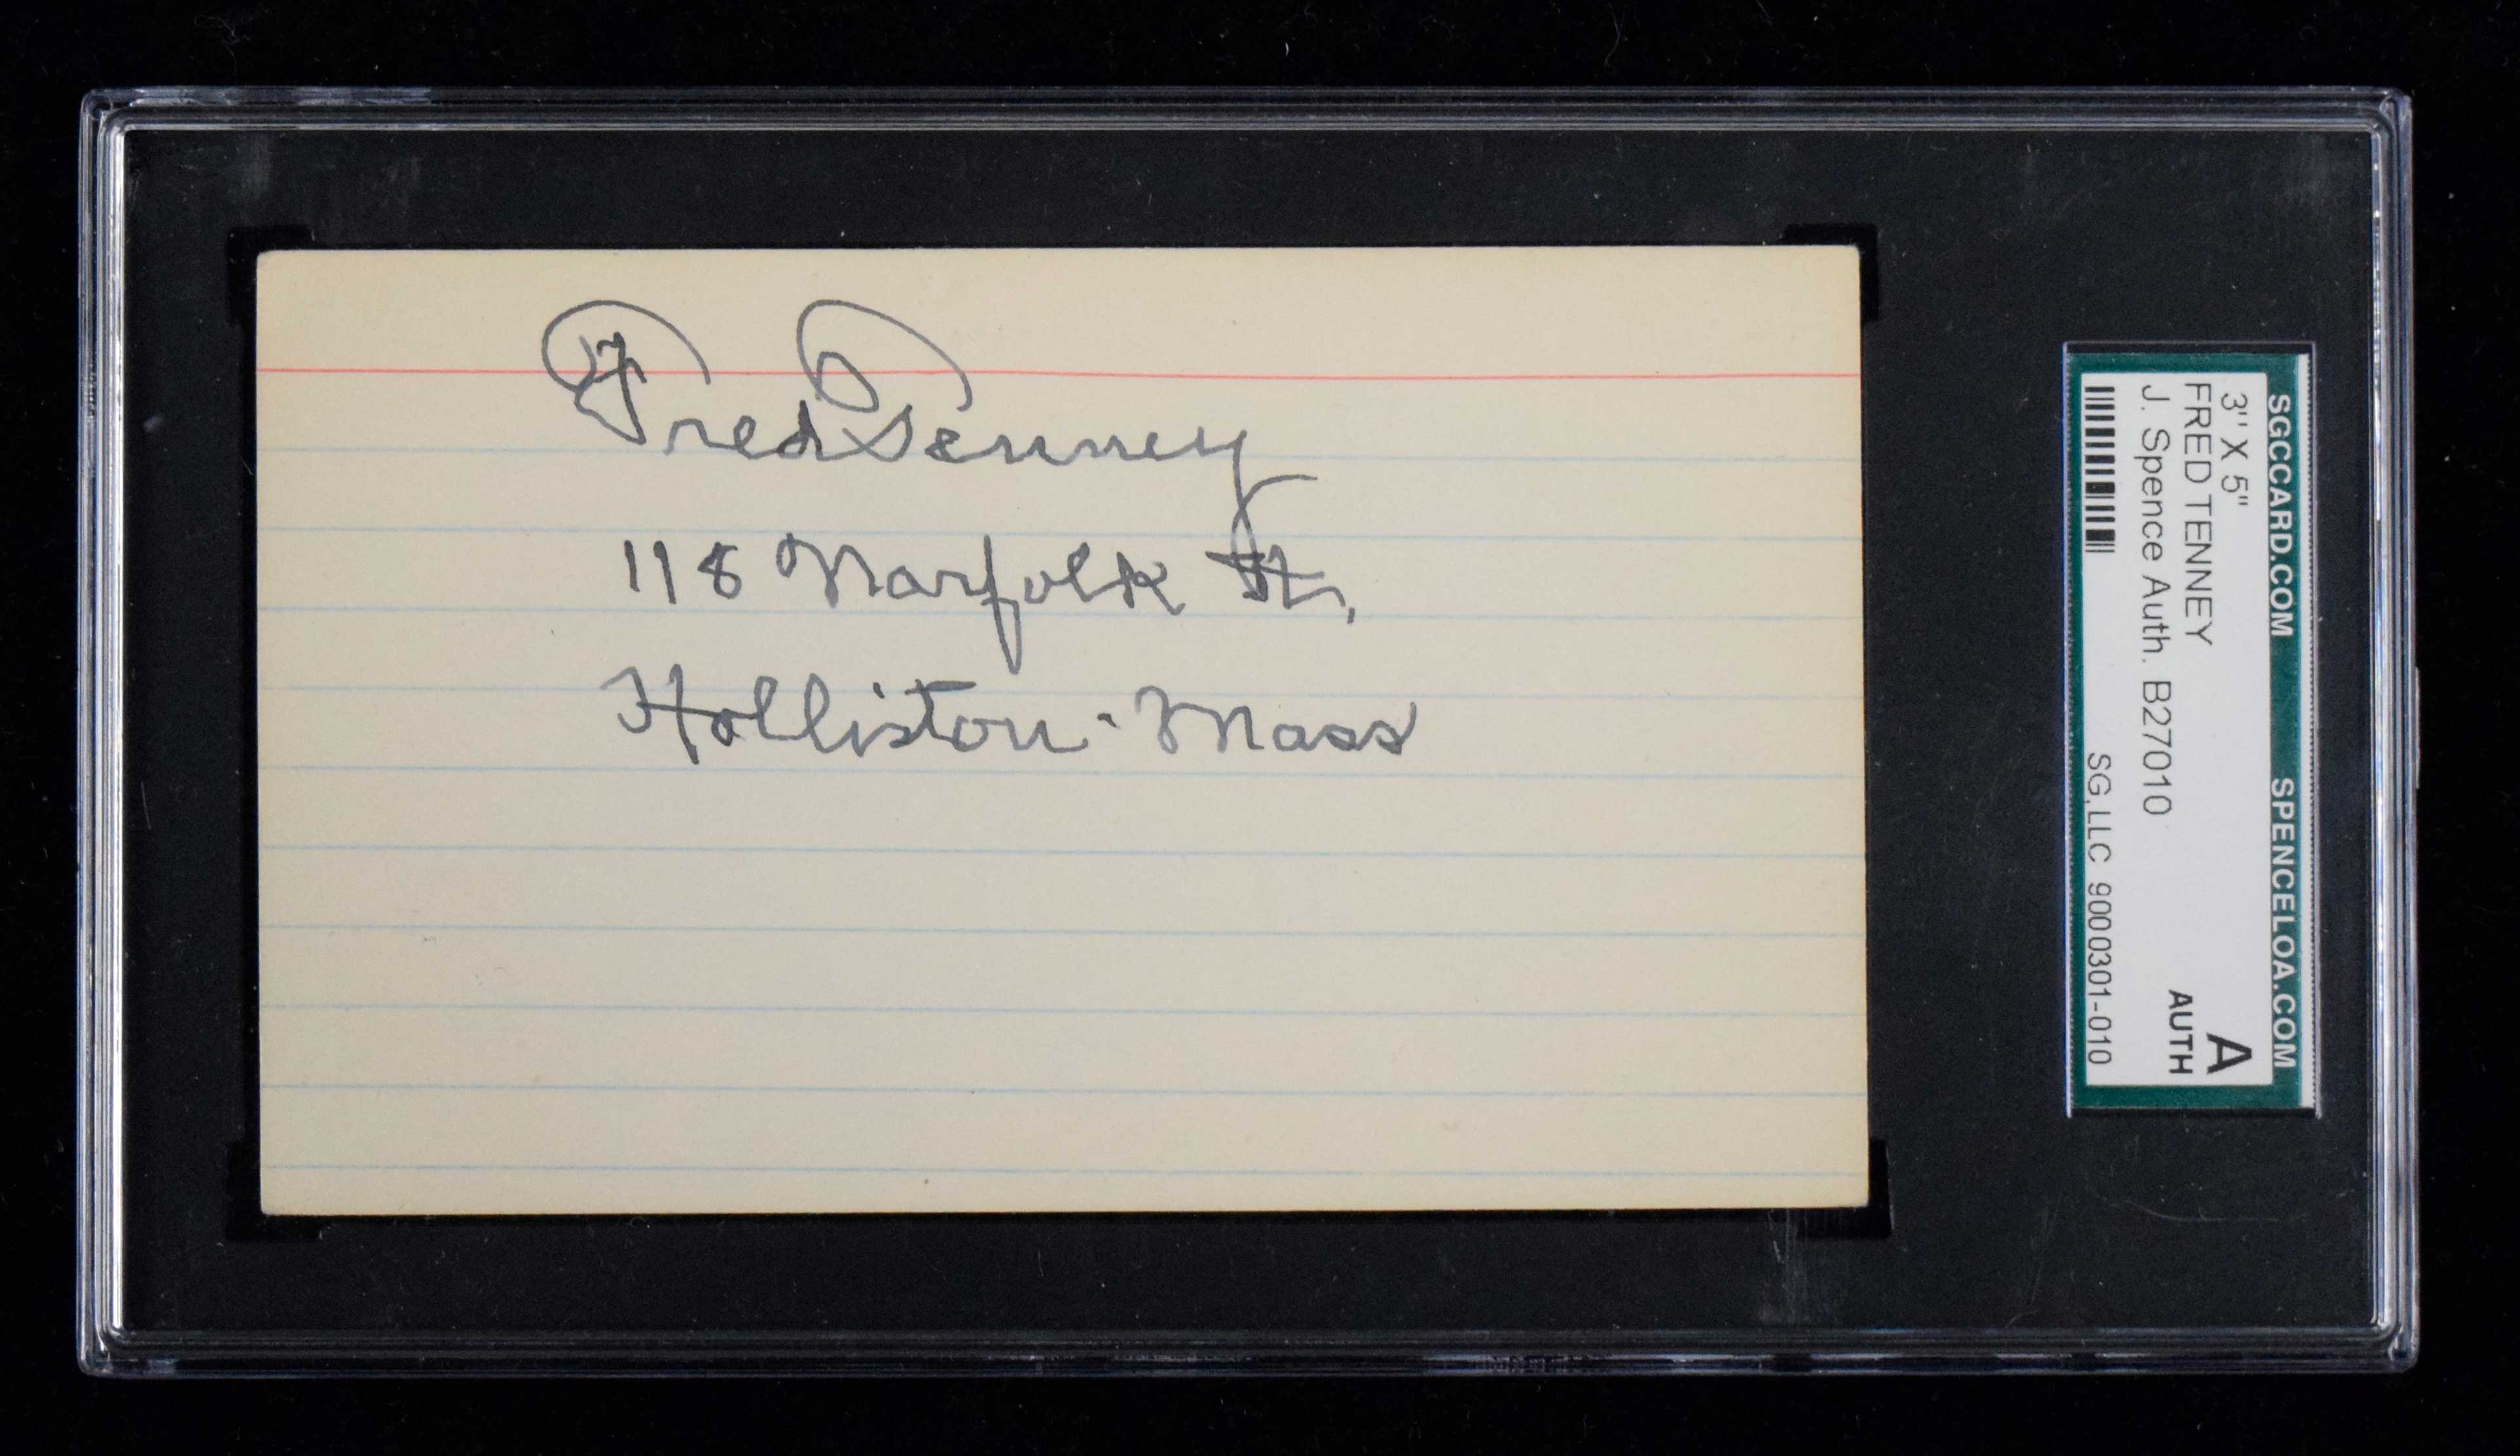 Fred Tenney
118 Norfolk St.
Holliston - Mass
SGCCARD.COM SPENCELOA.COM
3" X 5"
FRED TENNEY
J. Spence Auth. B27010
A
AUTH
SG,LLC 9000301-010